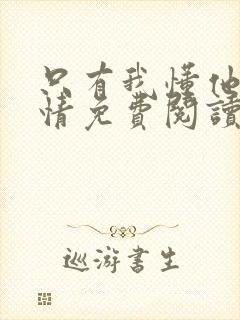 只有我懂他
情免費閱讀
巡游書生